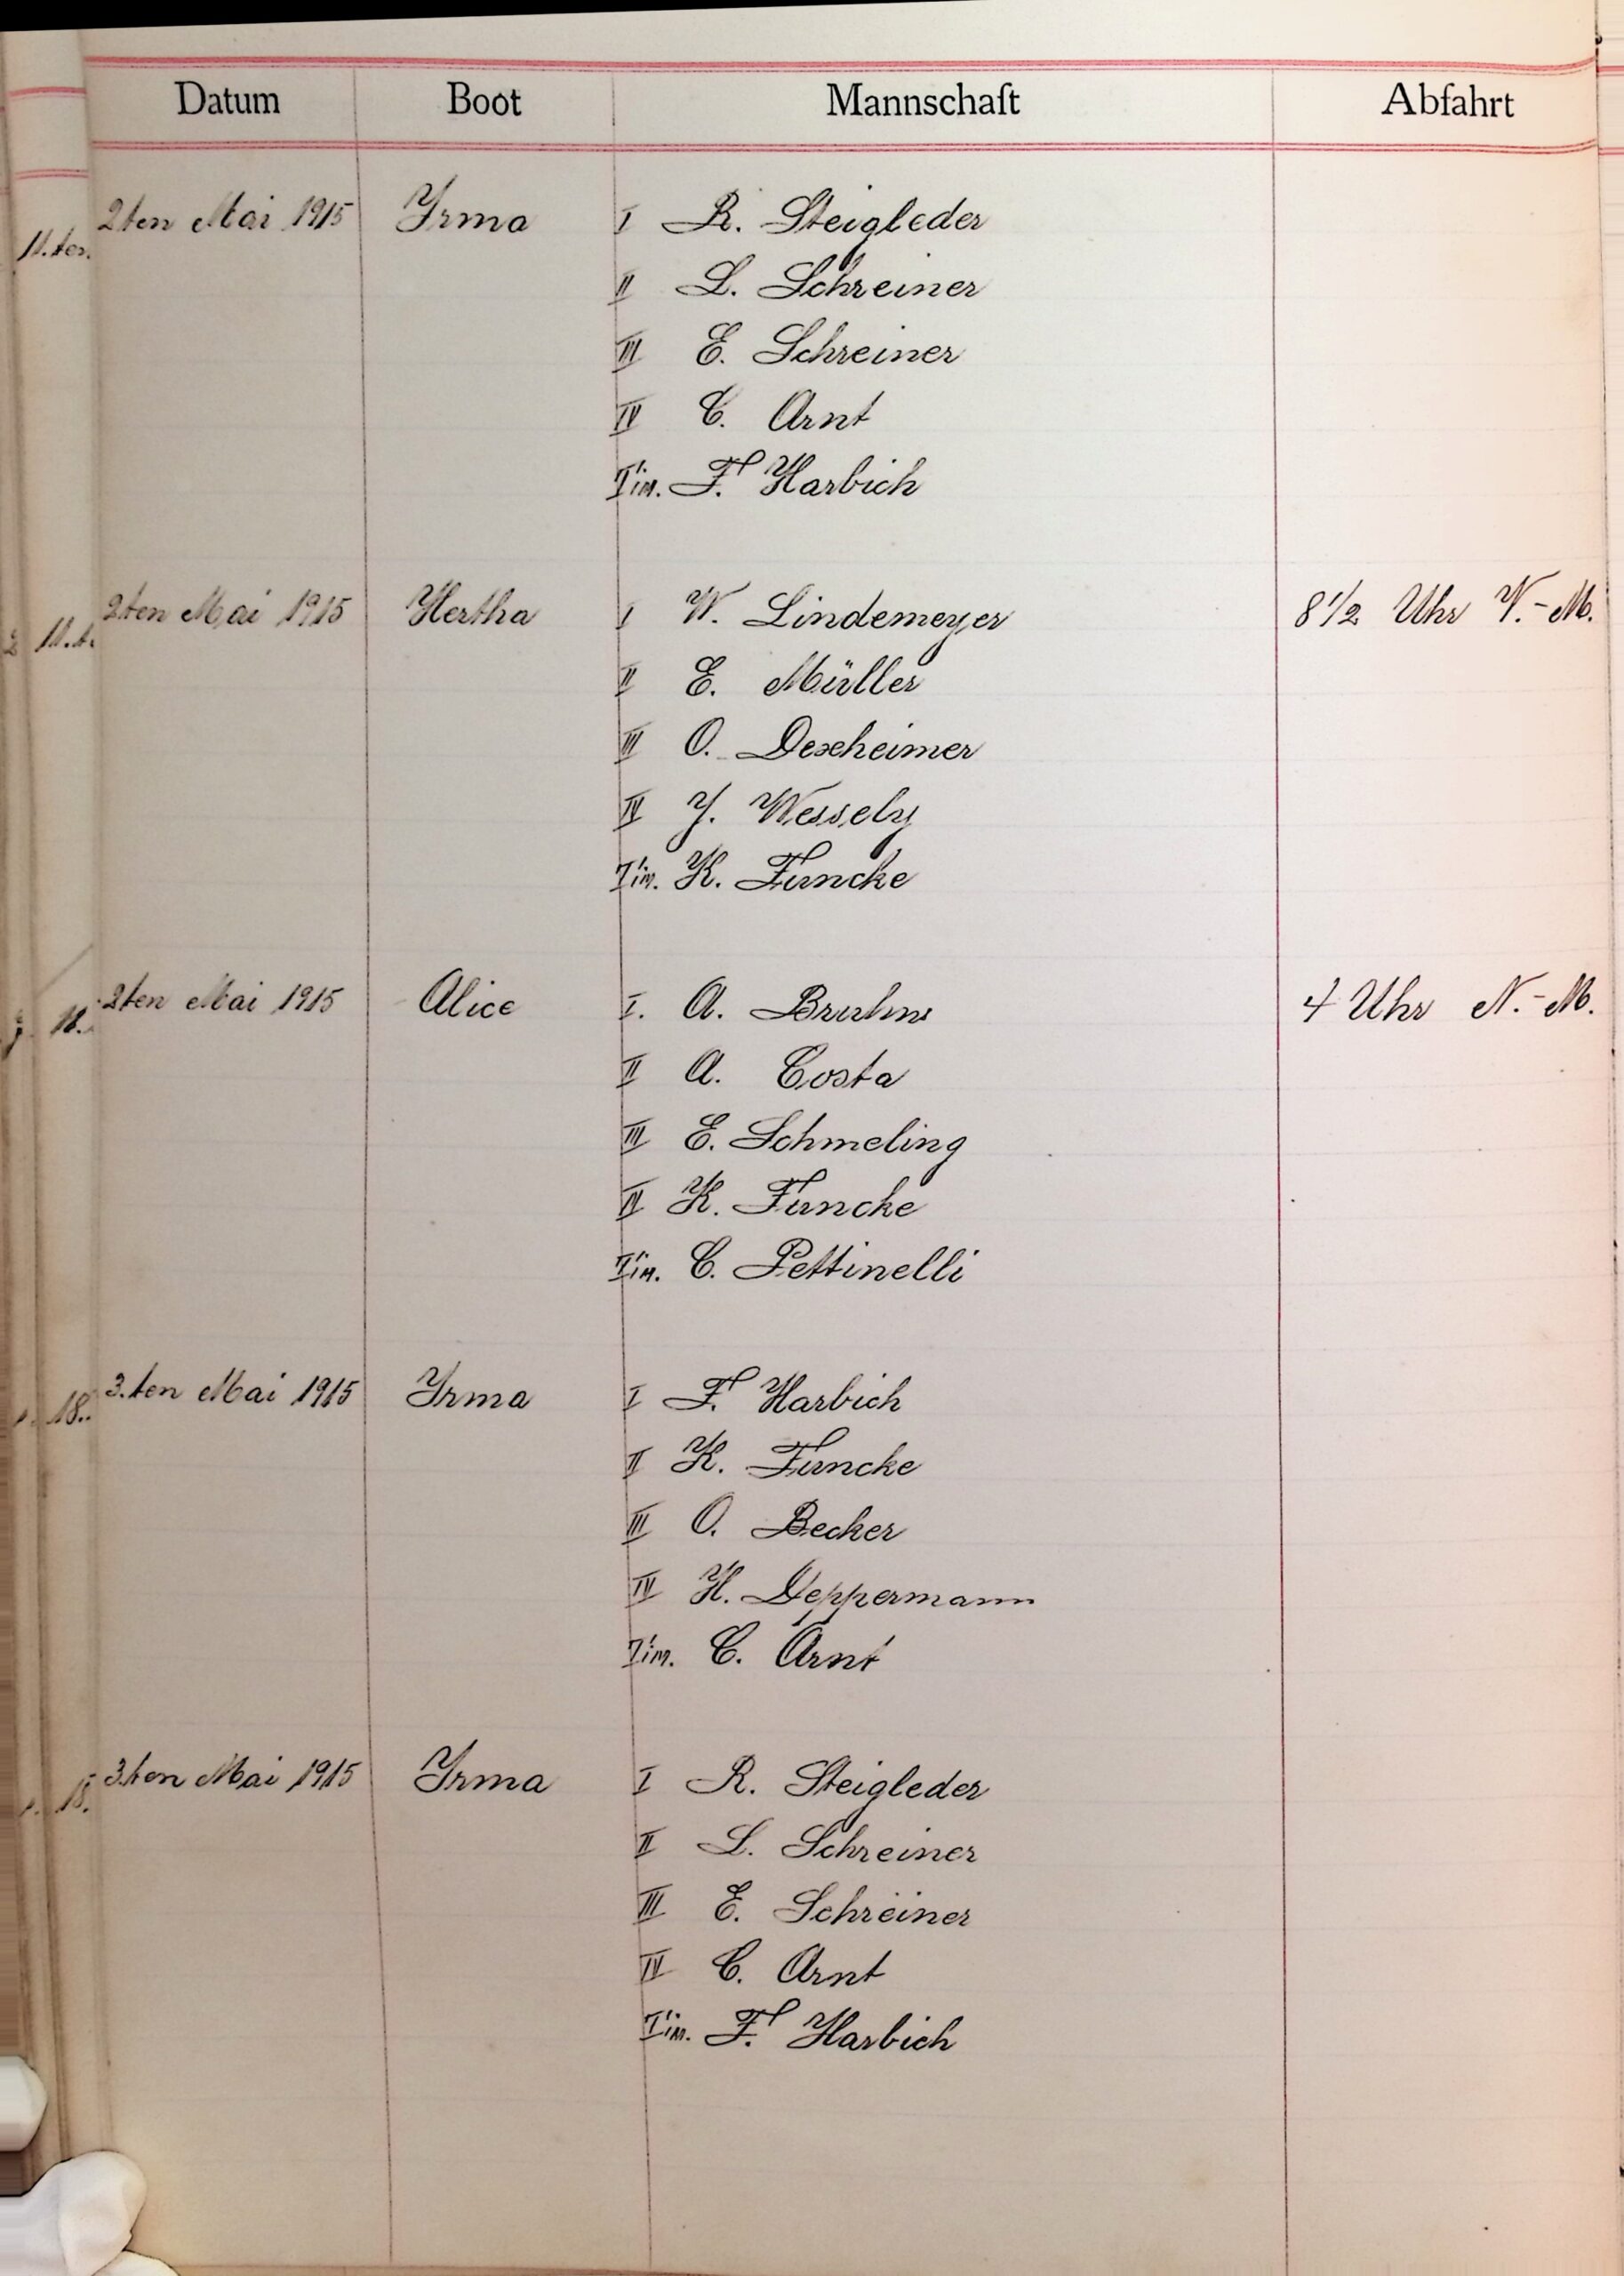 Datum Boot Mannschaft Abfahrt
2ten Mai 1915 Yrma I R. Steigleder
II L. Schreiner
III E. Schreiner
IV C. Arnt
Tim. F. Harbich
2ten Mai 1915 Hertha I W. Lindemeyer 8 1/2 Uhr V.-M.
II E. Müller
III O. Dexheimer
IV J. Wessely
Tim. K. Funcke
2ten Mai 1915 Alice I. A. Bruhns 4 Uhr N.-M.
II A. Costa
III E. Schmeling
IV K. Funcke
Tim. C. Pettinelli
3.ten Mai 1915 Yrma I F. Harbich
II K. Funcke
III O. Becker
IV H. Deppermann
Tim. C. Arnt
3.ten Mai 1915 Yrma I R. Steigleder
II L. Schreiner
III E. Schreiner
IV C. Arnt
Tim. F. Harbich